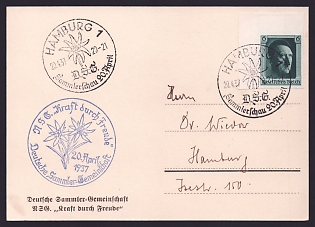 HAMBURG 1
20.4.37 20-21
D.S.G.
Sammlerschau 20. April
HAMBURG 1
20.4.37
D.S.G.
Sammlerschau 20. April
Deutsches Reich
N.S.G. „Kraft durch Freude”
20. April
1937
Deutsche Sammler-Gemeinschaft
Herrn
Dr. Wieder
Hamburg
Isestr. 150.
Deutsche Sammler-Gemeinschaft
NSG. „Kraft durch Freude”